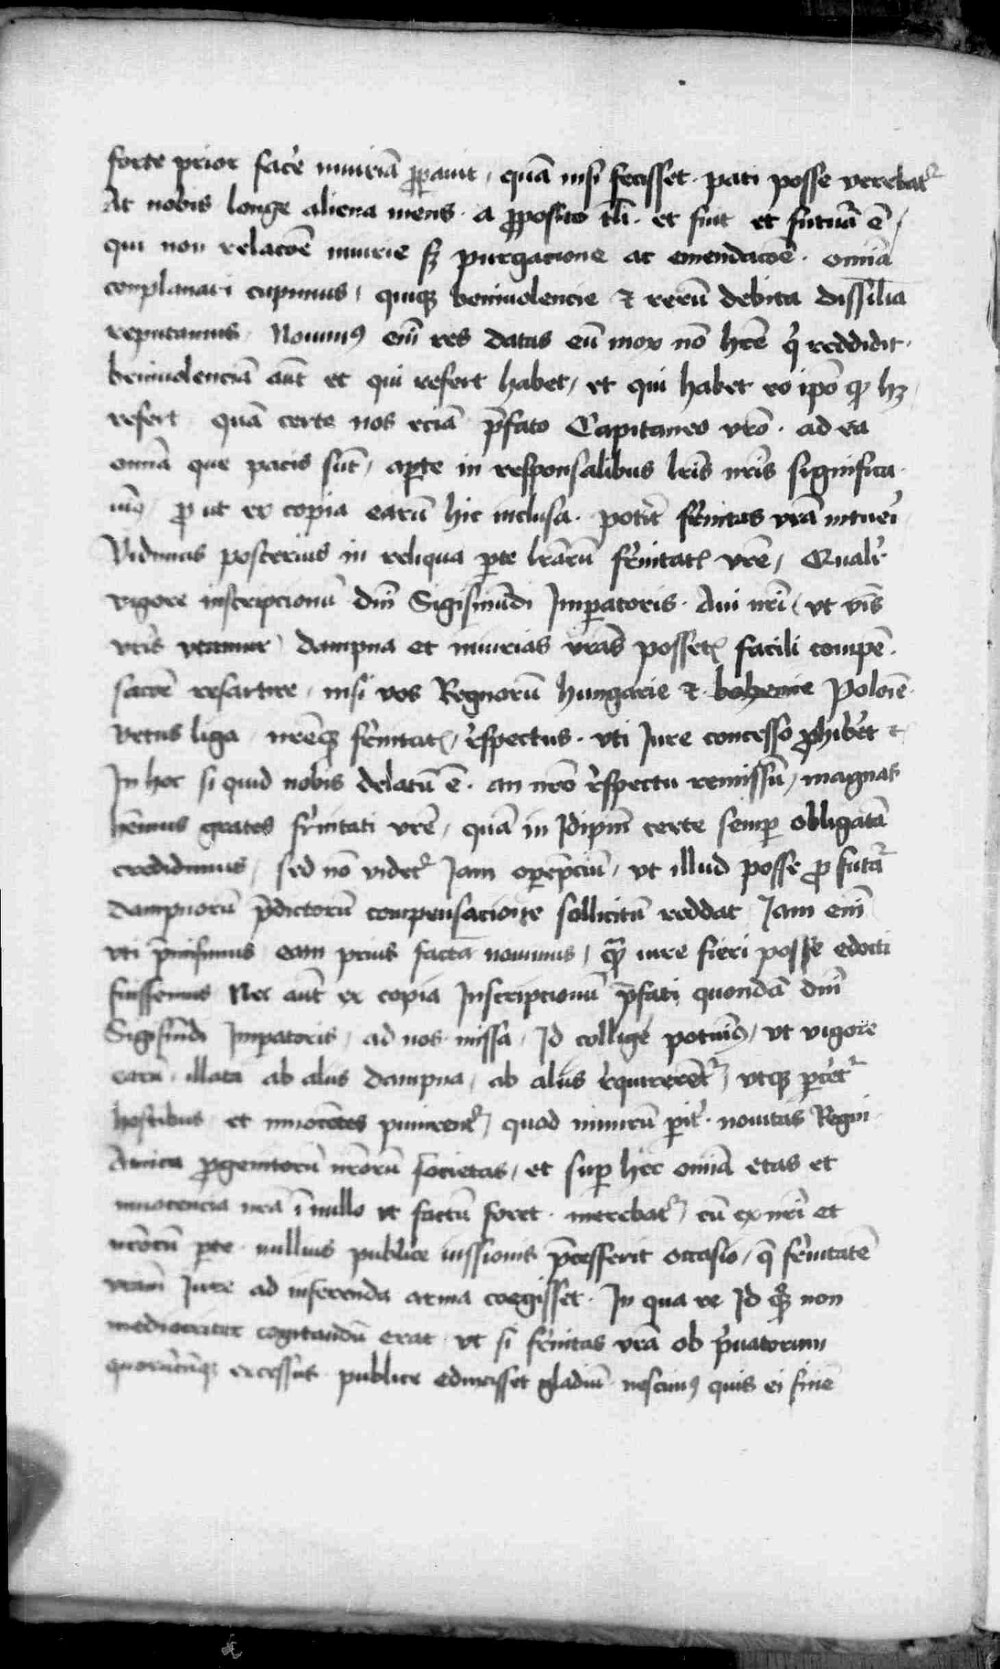 forte prior facē iniuriā ꝓpauit, quā nisi fecisset. pati posse verebat͛
At nobis longe aliena mens. a ꝓposito tli. et fuit et futura ē /
qui non relacōe iniurie sꝫ purgacione ac emendacōe. om̄ia
complanari cupimus, quiqꝫ beniuolencie & rerū debita dissīlia
reputamus. Nouimꝰ em̄ res datas eū mox nō hr̄e q̇ reddidit.
beniuolenciā aūt et qui refert habet, et qui habet eo ipō ꝙ hꝫ
refert quā certe nos eciā p̄fato Capitaneo vr̄o. ad ea
om̄ia que pacis sūt, apte in responsalibus lr̄is nr̄is significa.
uimꝰ, ꝓ ut ex copia earū hic inclusa. poterit sērnitas vr̄a intueri
Vidimus posterius in reliqua ꝑte lr̄arū sērnitatꝭ vr̄e, Qualr̄
vigore inscripcionū dn̄i Sigismūdi Imꝑatoris. Aui nr̄i, vt v̄bis
vr̄is vtamur, dampna et iniurias vr̄as possetꝭ facili compē.
sacōe resartire, nisi vos Regnorū hungarie & bohemie Polonie
vetus liga nr̄eqꝫ sērnitatꝭ, respectus. vti Jure concesso ꝓhiber̄t &
In hoc si quid nobis delatū ē. an nr̄o respectu remissū, magnas
hēmus grates sērnitati vr̄e, quā in Idipm̄ certe semꝑ obligatā
credidimus, sed nō videt͛ Jam oꝑepciū, vt illud posse ꝓ futa͛
dampnorū p̄dictorū compensacione sollicitū reddat Jam em̄
vti p̄misimus eam prius facta nouimus, qᷓ iure fieri posse edocti
fuissemus Nec aūt ex copia Inscripcionū p̄fati quondā dn̄i
Sigismūdi Imꝑatoris, ad nos missa, Id collige potuimꝰ, vt vigore
earū illata ab aliis dampna, ab aliis requirerēt͛, vtqꝫ ꝑcēt͛
hostibus et innocētes punirent͛, quod nimirū ꝑit͛. nouitas Regni
Amica ꝓgenitorū nr̄orū societas, et suꝑ hec om̄ia etas et
innocencia nr̄a ī nullo vt factū foret. merebat͛, cū ex nr̄i et
nr̄orū ꝑte nullius publice iussionis p̄cesserit occasio, q̄ sērnitatē
vr̄am Jure ad inferenda arma coegisset. In qua re Id qꝫ non
mediocriter cogitandū erat vt si sērnitas vr̄a ob priuatorum
quorūcūqꝫ excessus publice eduxisset gladiū nescimꝰ quis ei finē